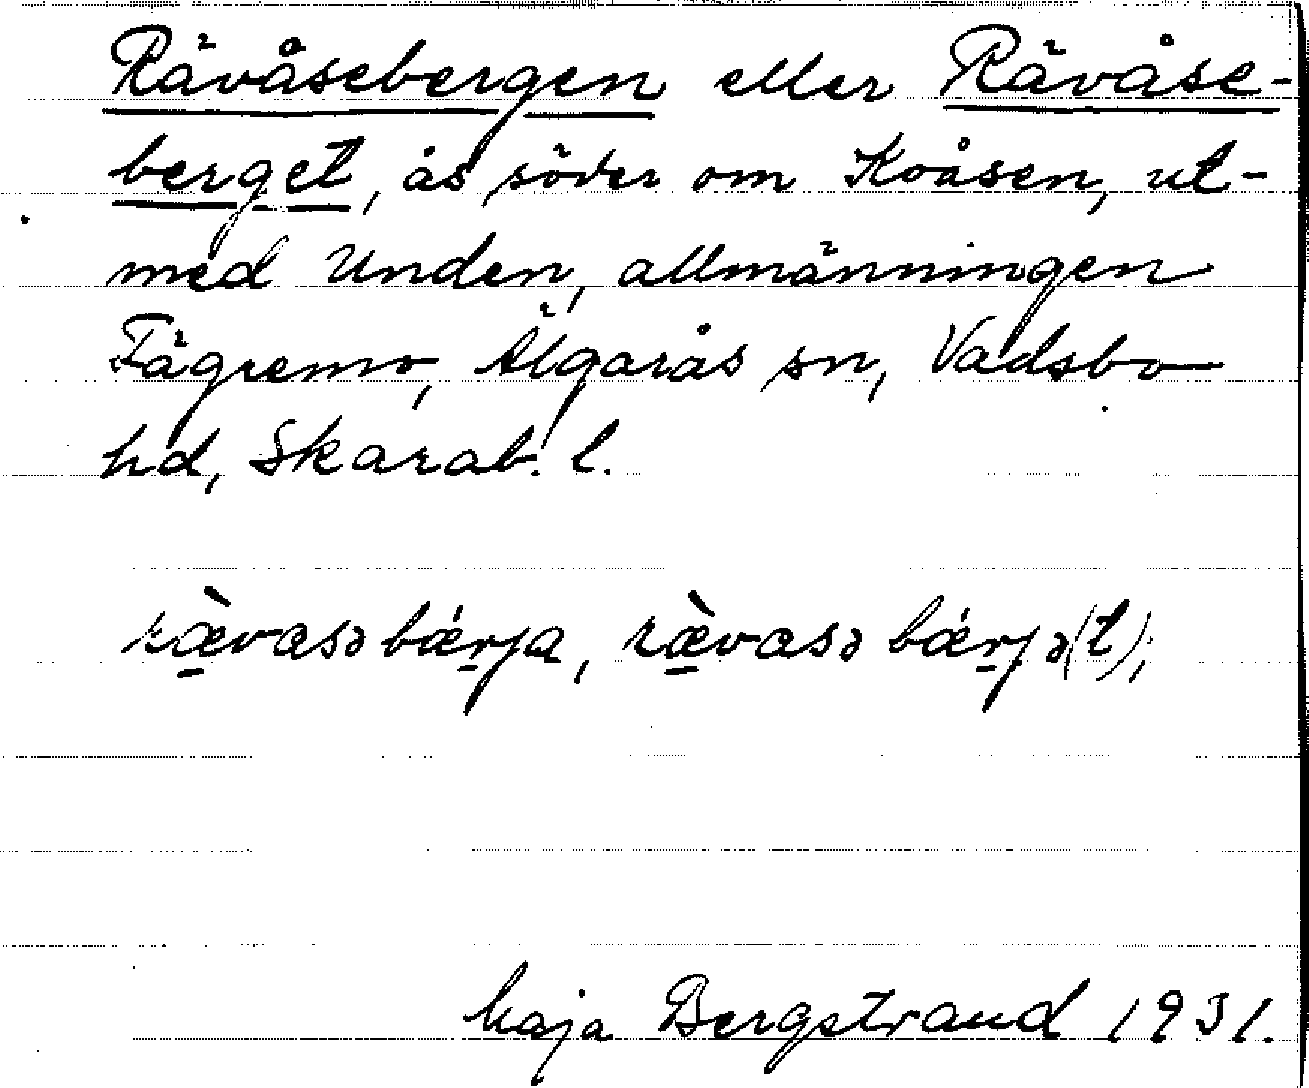 Rävåsebergen eller Rävåse-
berget, ås söder om Koåsen, ut-
med Unden, allmänningen
Fägremo, Älgarås sn, Vadsbo
hd, Skarab. l.
ræ̀vasə bǽrja, ræ̀vasə bǽrjə(t);
Maja Bergstrand 1931.